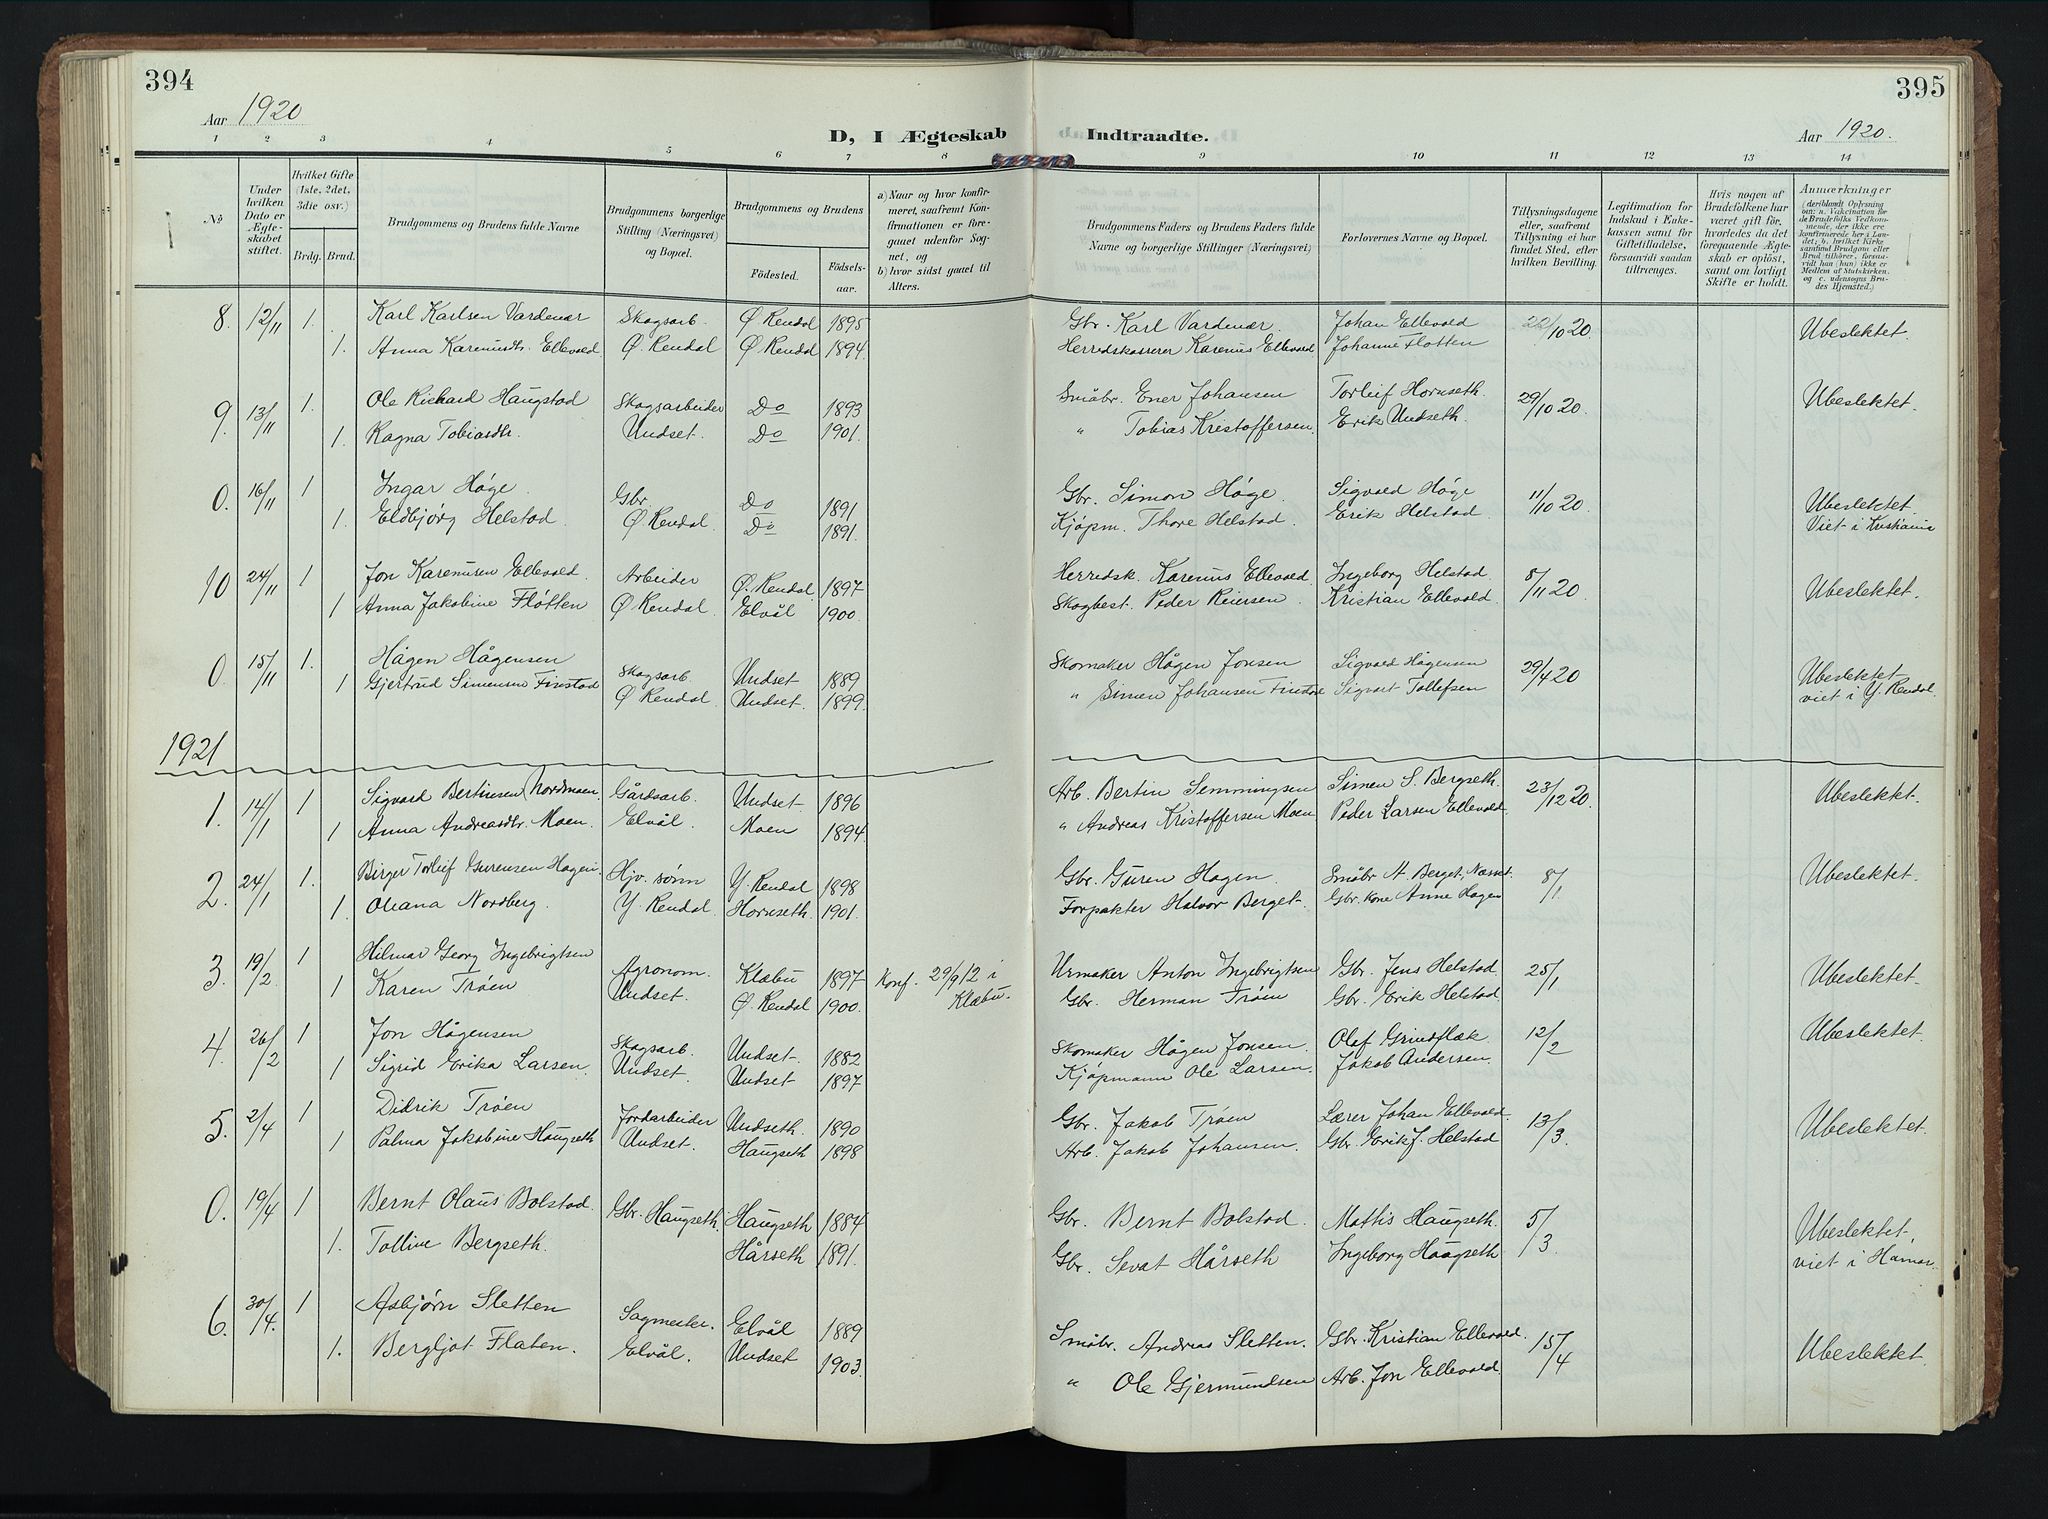 394
395
Aar 1920
D, I Ægteskab Indtraadte.
Aar 1920.
1 2 3 4 5 6 7 8 9 10 11 12 13 14
No
Under hvilken Dato er Ægteskabet stiftet.
Hvilket Gifte (1ste, 2det, 3die osv.)
Brdg. Brud.
Brudgommens og Brudens fulde Navne
Brudgommens borgerlige Stilling (Næringsvei) og Bopæl.
Brudgommens og Brudens
Födested.
Födsels-aar.
a) Naar og hvor konfirmeret, saafremt Konfirmationen er foregaaet udenfor Sognet, og
b) hvor sidst gaaet til Alters.
Brudgommens Faders og Brudens Faders fulde Navne og borgerlige Stillinger (Næringsvei)
Forlovernes Navne og Bopæl.
Tillysningsdagene eller, saafremt Tillysning ei har fundet Sted, efter hvilken Bevilling
Legitimation for Indskud i Enkekassen samt for Giftetilladelse, forsaavidt saadan tiltrænges.
Hvis nogen af Brudefolkene har været gift för, hvorledes da det foregaaende Ægteskab er oplöst, samt om lovligt Skifte er holdt.
Anmærkninger (deriblandt Oplysning om: a. Vakcination for de Brudefolks Vedkommende, der ikke ere konfirmerede her i Landet; b. hvilket Kirkesamfund Brudgom eller Brud tilhörer, forsaavidt han (hun) ikke er Medlem af Statskirken, og c. udensogns Brudes Hjemsted.)
8. 12/11 1. Karl Karlsen Vardenær Skogsarb. Ø Rendal 1895 Gbr. Karl Vardenær. Johan Ellevold 22/10 20 Ubeslektet.
1. Anna Kareniusdtr. Ellevold Ø. Rendal Ø Rendal 1894. Herredskasserer Karenius Ellevold Johanne Fløtten
9. 13/11 1. Ole Richard Haugstad Skogsarbeider Do 1893 Småbr. Ener Johansen Torleif Hornseth. 29/10 20. Ubeslektet.
1. Ragna Tobiasdtr. Undset. Do 1901. " Tobias Krestoffersen. Erik Undseth.
0. 16/11 1 Ingar Høge. Gbr. Do 1891 Gbr. Simon Høge. Sigvald Høge 11/10 20. Ubeslektet.
1. Eldbjørg Helstad. Ø Rendal. Do 1891. Kjøpm. Thore Helstad. Erik Helstad. Viet i Kristiania
10 24/11 1 Jon Kareniusen Ellevold. Arbeider Ø. Rendal. 1897 Herredsk. Karenius Ellevold. Ingeborg Helstad. 5/11 20 Ubeslektet.
1 Anna Jakobine Fløtten Ø Rendal. Elvål 1900. Skogbest. Peder Reiersen Kristian Ellevold.
0. 15/11 1. Hågen Hågensen Skogsarb. Undset 1889 Skomaker Hågen Jonsen Sigvald Hågensen 29/4 20 Ubeslektet
1 Gjertrud Simensen Finstad Ø Rendal. Undset. 1899. " Simen Johansen Finstad Sigvart Tollefsen viet i Y. Rendal.
1921
1. 14/1 1 Sigvard Bertinsen (Nordmoen. Gårdsarb. Undset. 1896 Arb. Bertin Semmingsen Simen S. Bergseth. 23/12 20. Ubeslekkt.
1 Anna Andreasdtr. Moen. Elvål. Moen 1894 " Andreas Kristoffersen Moen Peder Larsen Ellevold.
2. 24/1 1. Birger Torleif Gurensen Hagen. Hjv. sønn Y. Rendal 1898 Gbr. Guren Hagen. Småbr A. Berget, Næsset. 8/1 Ubeslektet.
1. Oliana Nordberg. Y. Rendal. Hornseth. 1901. Forpakter Halvor Berget Gbr. kone Anne Hagen
3. 19/2. 1 Hilmar Georg Ingebrigtsen Agronom. Klæbu 1897 Konf. 29/9 12 i Klæbu. Urmaker Anton Ingebrigtsen Gbr. Jens Helstad. 25/1 Ubeslektet.
1 Karen Trøen Undset. Ø. Rendal 1900. Gbr. Herman Trøen Gbr. Erik Helstad.
4. 26/2 1 Jon Hågensen Skogsarb. Undset. 1882 Skomaker Hågen Jonsen. Olaf Grindflæk 12/2 Ubeslektet.
1 Sigrid Erika Larsen. Undset. Undset 1897 Kjøpmann Ole Larsen. Jakob Andersen.
5. 2/4 1 Didrik Trøen Jordarbeider Undseth. 1890 Gbr. Jakob Trøen Lærer Johan Ellevold. 13/3. Ubeslektet.
1 Palma Jakobine Haugseth Undset. Haugseth 1898 Arb. Jakob Johansen. Gbr. Erik J. Helstad
0. 19/4 1 Bernt Olaus Bolstad. Gbr. Haugseth. Haugseth 1884 Gbr. Bernt Bolstad. Mattis Haugseth. 5/3 Ubeslektet,
1. Tolline Bergseth. Hårseth 1891. Gbr. Sevat Hårseth Ingeborg Haugseth viet i Hamar.
6. 30/4. 1 Asbjørn Sletten Sagmester. Elvål 1889 Småbr. Andreas Sletten. Gbr. Kristian Ellevold. 15/4 Ubeslektet.
1. Bergljot Flaten. Elvål. Undset 1903. " Ole Gjermundsen Arb. Jon Ellevold.